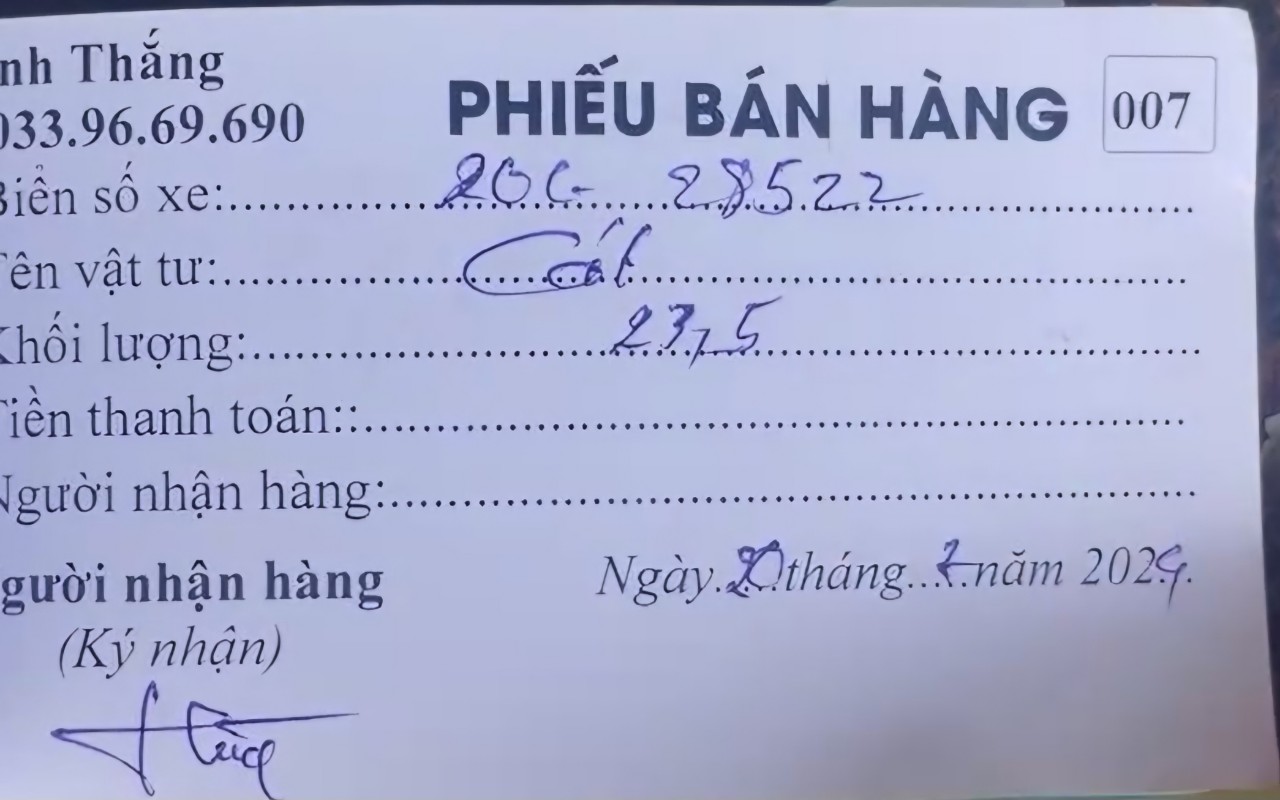 nh Thắng
033.96.69.690
PHIẾU BÁN HÀNG 007
Biển số xe: 20C 28522
Tên vật tư: Cát
Khối lượng: 23,5
Tiền thanh toán::
Người nhận hàng:
Ngày 20 tháng 7 năm 2024.
gười nhận hàng
(Ký nhận)